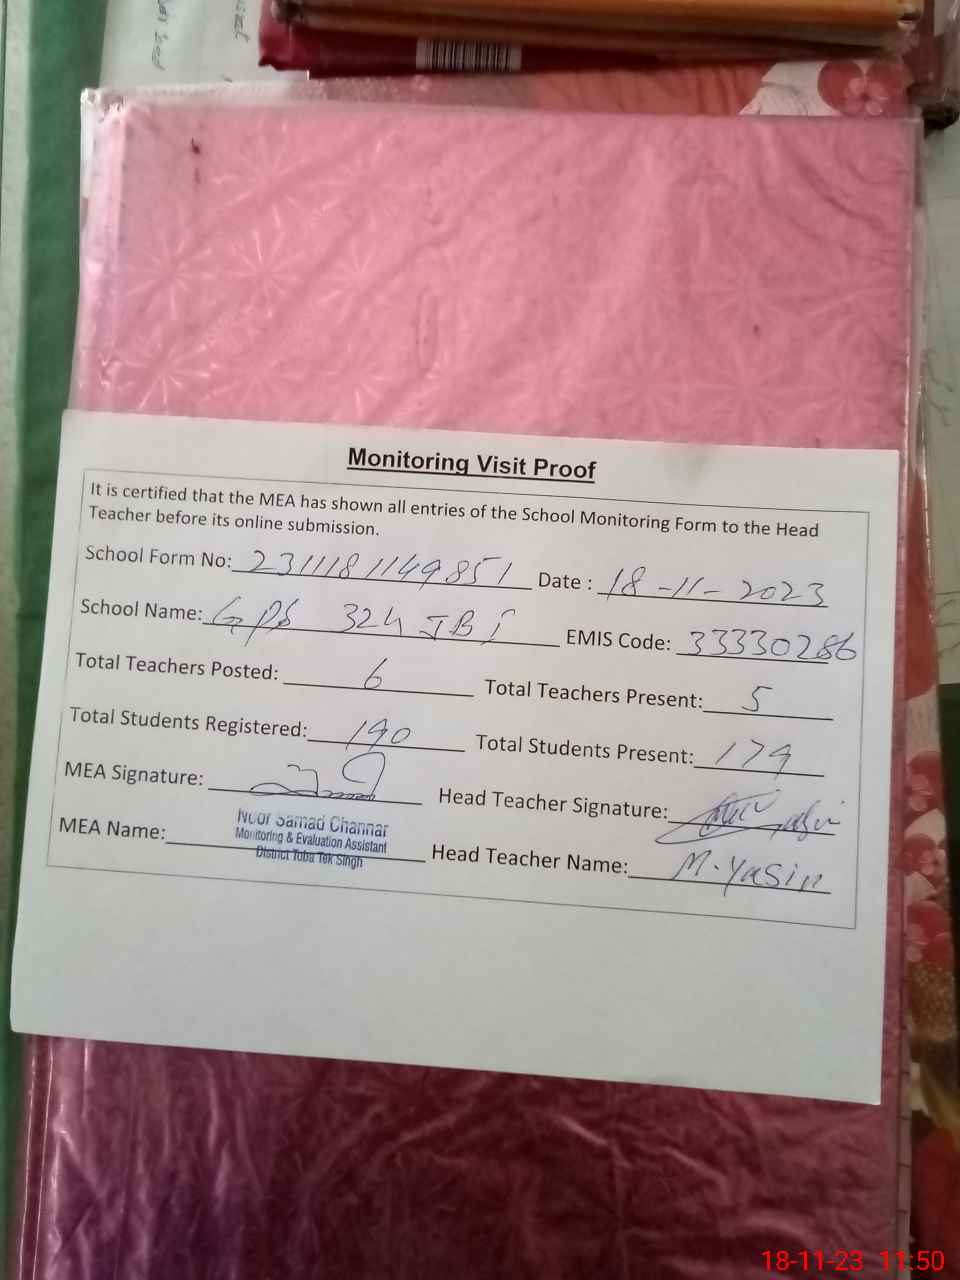 Monitoring Visit Proof
It is certified that the MEA has shown all entries of the School Monitoring Form to the Head
Teacher before its online submission.
School Form No: 2311181149851 Date : 18-11-2023
School Name: GPS 324 JB i EMIS Code: 33330286
Total Teachers Posted: 6 Total Teachers Present: 5
Total Students Registered: 190 Total Students Present: 179
MEA Signature: Head Teacher Signature:
MEA Name: Noor Samad Channar
Monitoring & Evaluation Assistant
District Toba Tek Singh
Head Teacher Name: M. Yasin
18-11-23 11:50